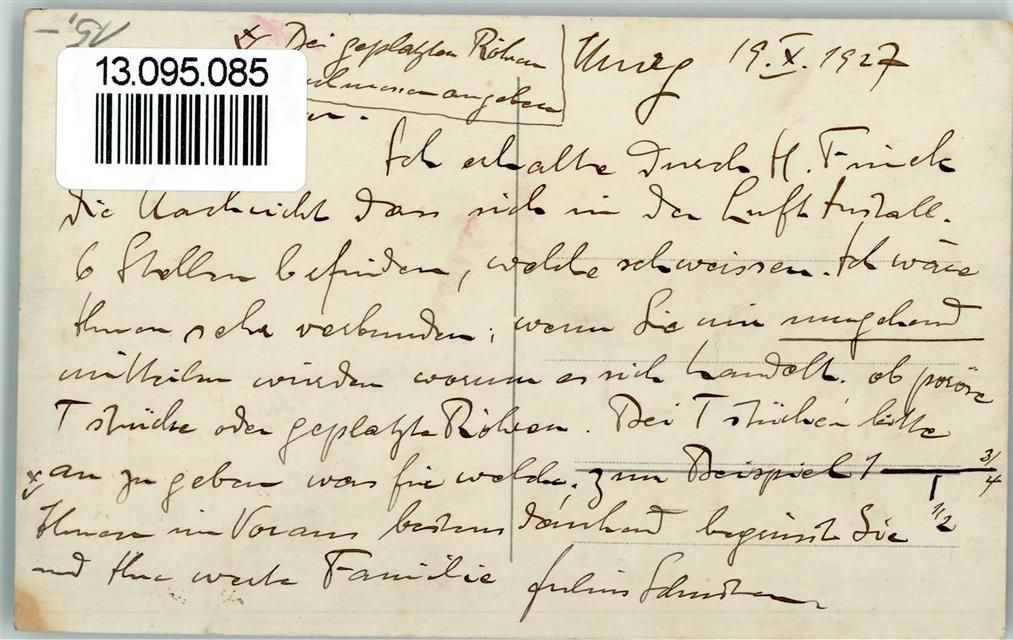 13.095.085
x Bei geplatzten Röhren
angeben
19.X.1927
Ich erhalte durch H. Finck
die Nachricht dass sich in der Luft Install.
6 Stellen befinden, welche schweissen. Ich wäre
Ihnen sehr verbunden, wenn Sie mir umgehend
mittheilen würden worum es sich handelt. ob poröse
T stücke oder geplatzte Röhren. Bei T stücken bitte
x an zu geben was für welche, zum Beispiel 1 T 3/4
1/2
Ihnen im Voraus bestens dankend begrüsst Sie
und Ihre werte Familie Julius